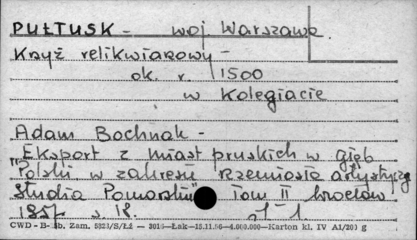 PUŁTUSK - woj Warszawa.
Krzyż relikwiarowy -
ok. r. 1500
w Kolegiacie
Adam Bochnak -
"Eksport z miast pruskich w głąb
Polski w zakresie rzemiosła artystycz
Studia Pomorskie" Tom II Wrocław
1957 s. 18.
CWD - B-sb. Zam. 5323/S/Łź — 2016—Łak—15.11.56—4.000.000—Karton kl. IV A1/200 g